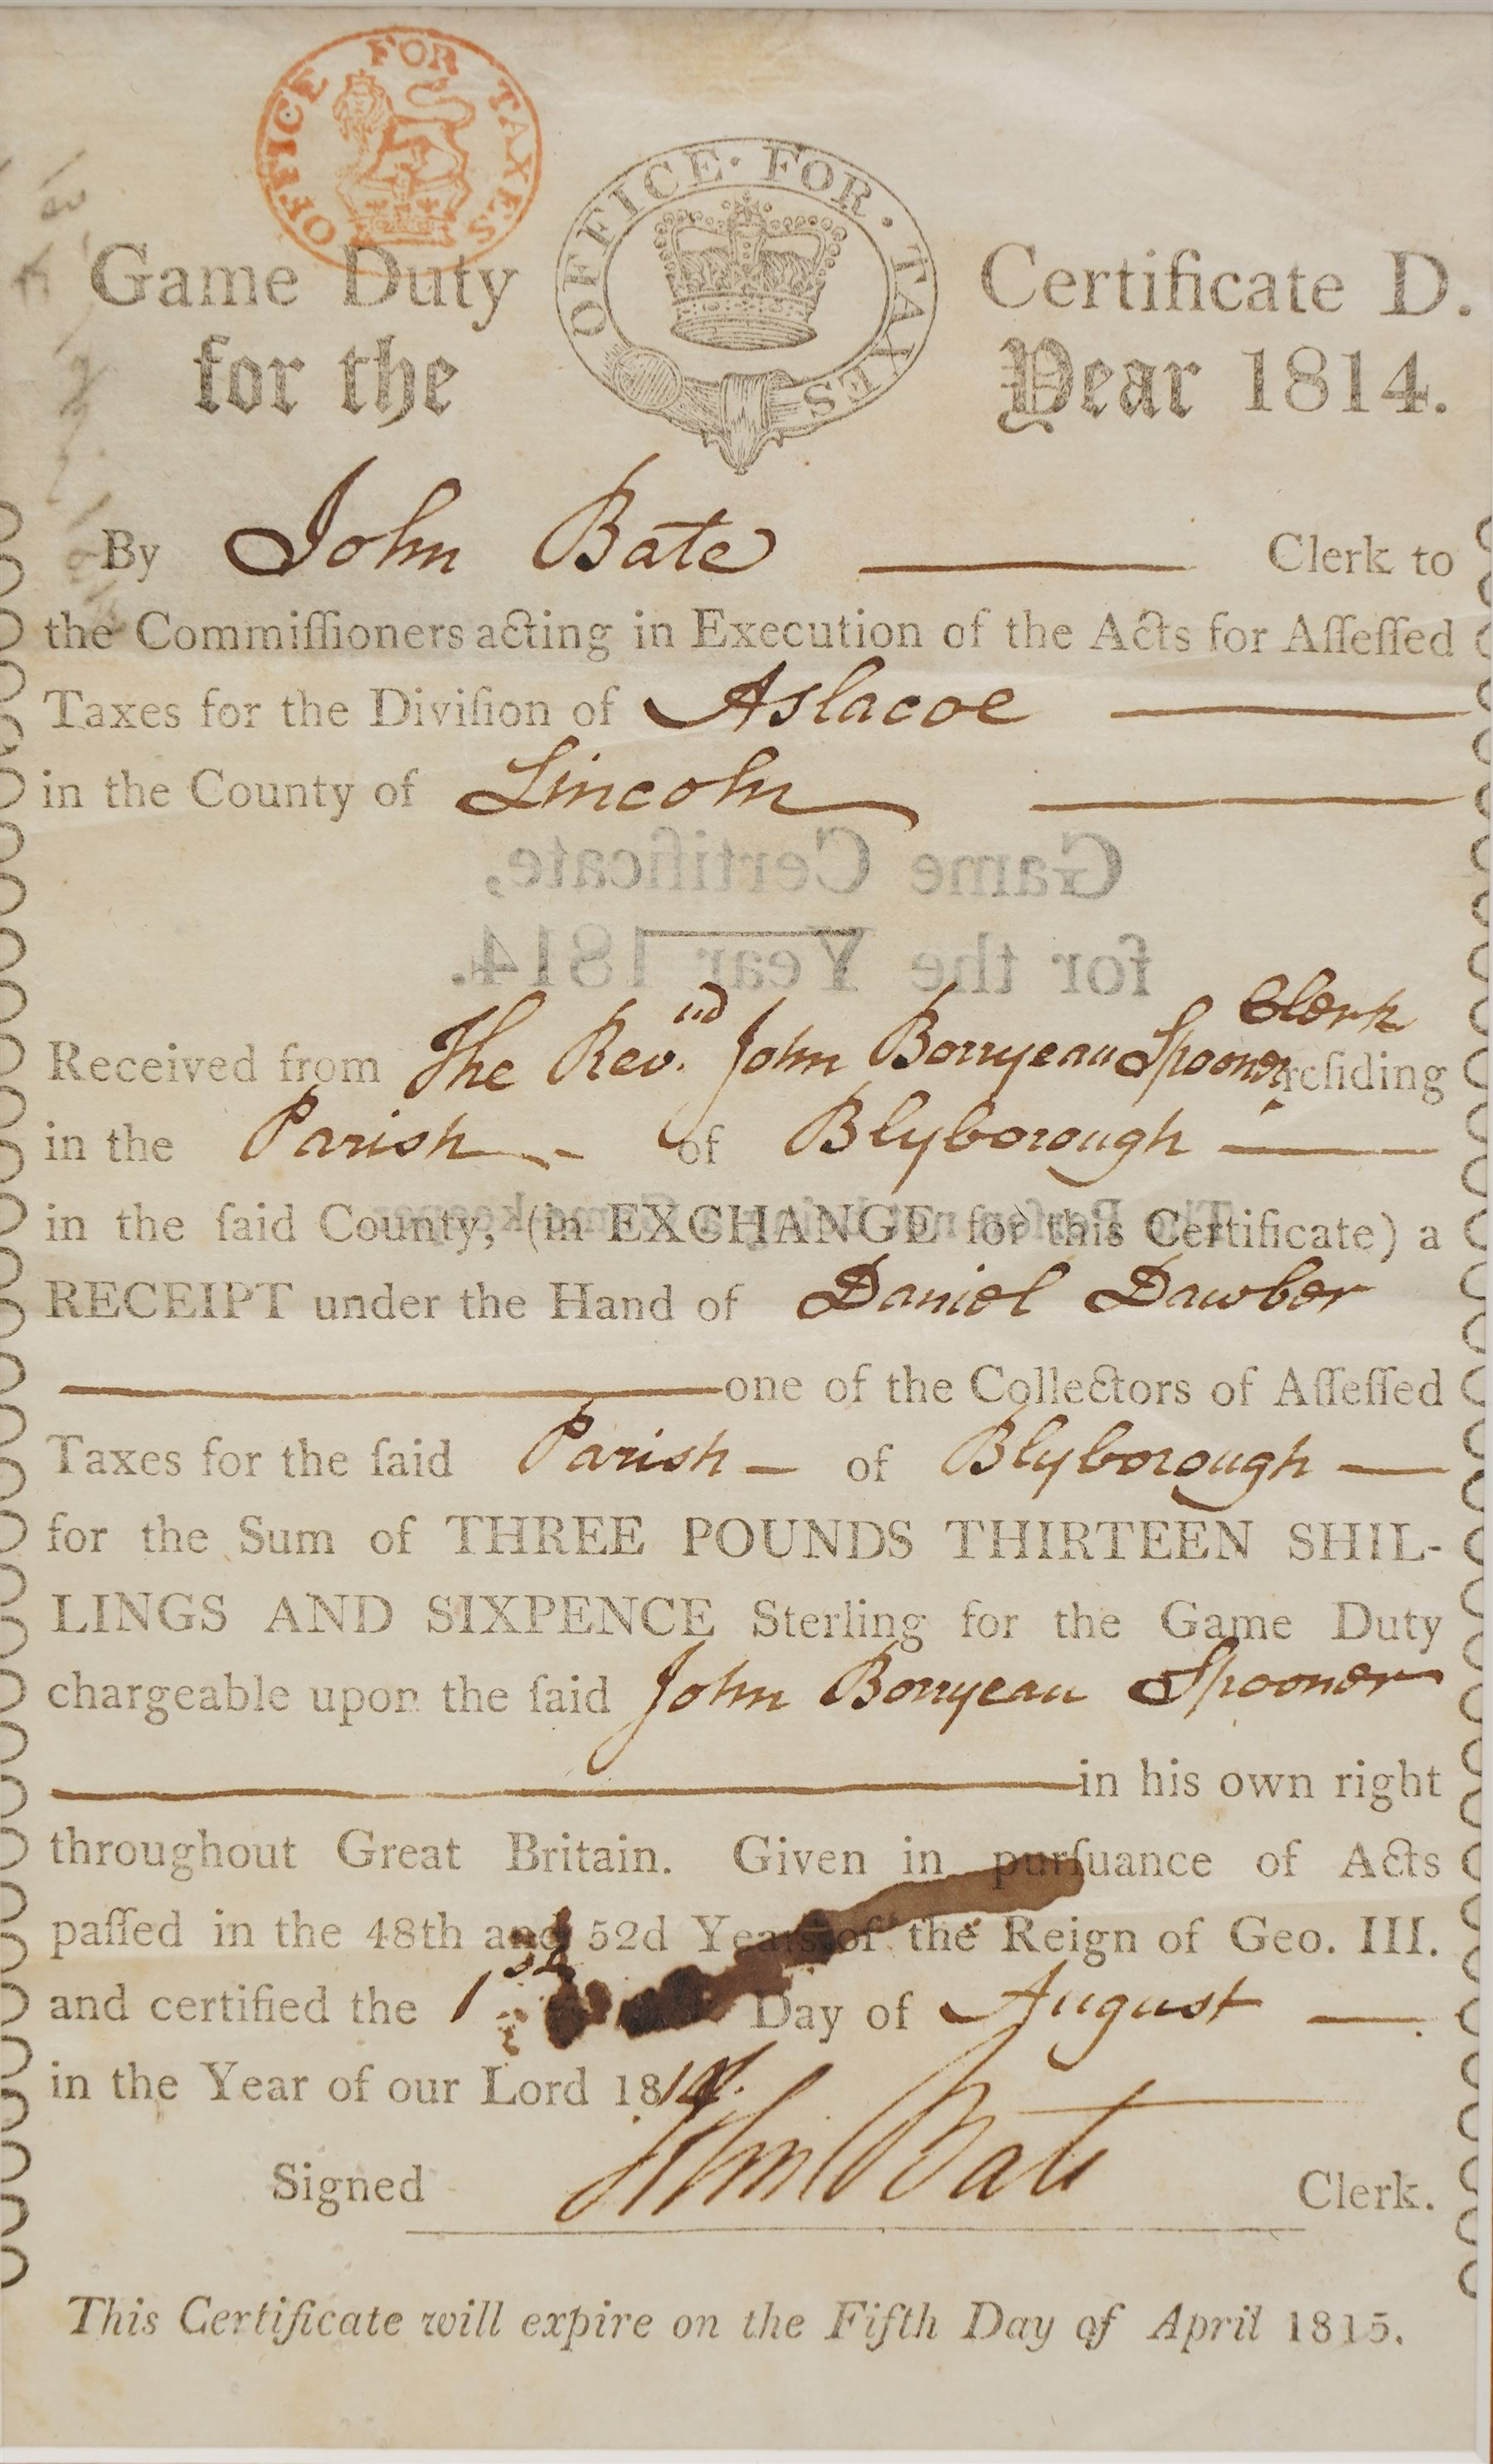 OFFICE FOR TAXES
OFFICE · FOR · TAXES
Game Duty Certificate D.
for the Year 1814.
By John Bate Clerk to
the Commiſſioners acting in Execution of the Acts for Aſſeſſed
Taxes for the Diviſion of Aslacoe
in the County of Lincoln
Game Certificate,
for the Year 1814.
Clerk
Received from The Rev.nd John Bonnyeau Spooner reſiding
in the Parish of Blyborough
in the ſaid County, (in EXCHANGE for this Certificate) a
RECEIPT under the Hand of Daniel Dawber
one of the Collectors of Aſſeſſed
Taxes for the ſaid Parish of Blyborough
for the Sum of THREE POUNDS THIRTEEN SHIL-
LINGS AND SIXPENCE Sterling for the Game Duty
chargeable upon the ſaid John Bonnyeau Spooner
in his own right
throughout Great Britain. Given in purſuance of Acts
paſſed in the 48th and 52d Years of the Reign of Geo. III.
and certified the 1st Day of August
in the Year of our Lord 1814.
Signed John Bate Clerk.
This Certificate will expire on the Fifth Day of April 1815.